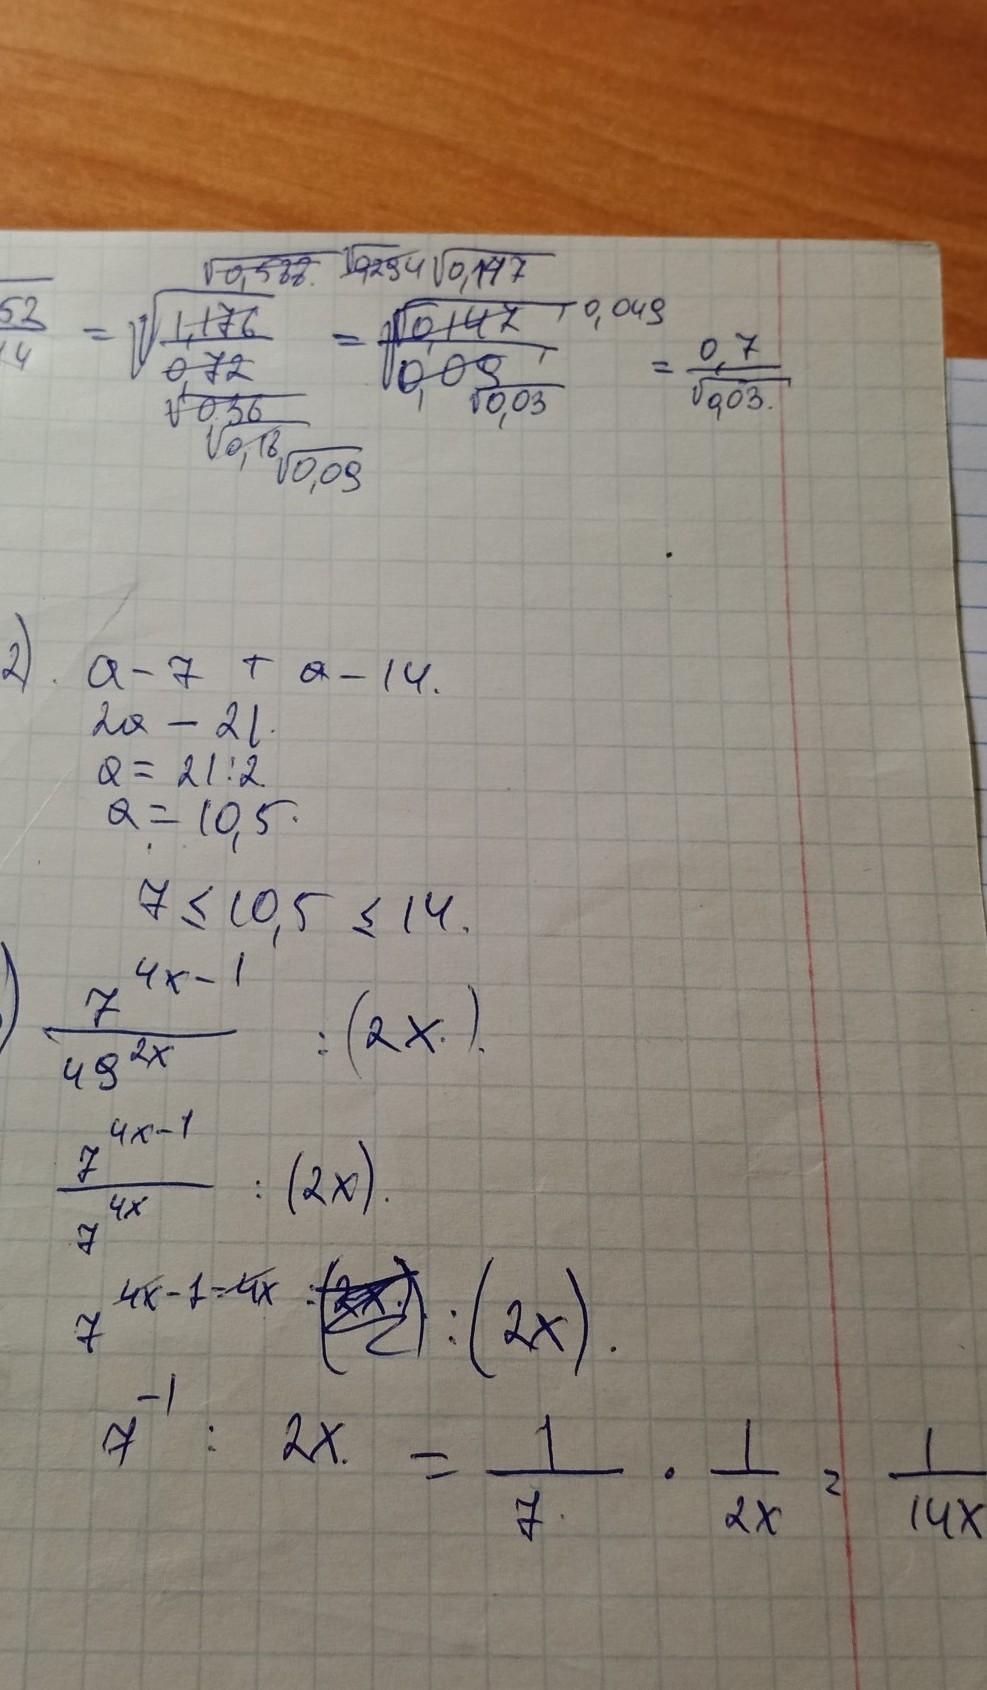 √0,588 √0,294 √0,147
52/14 = √(1,176/0,72) = √(0,147/0,09) 0,049 = 0,7/√0,03.
√0,36 √0,03
√0,18 √0,09
2). a - 7 + a - 14.
2a - 21.
a = 21:2
a = 10,5.
7 ≤ 10,5 ≤ 14.
) 7^(4x-1)/49^(2x) : (2x.).
7^(4x-1)/7^(4x) : (2x).
7^(4x-1-4x) : (2x).
7^(-1) : 2x. = 1/7. · 1/2x = 1/14x